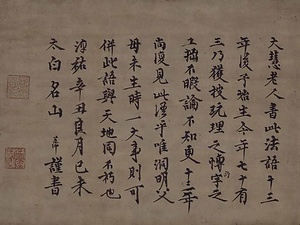 大慧老人書此法語十三
年後予始生今年七十有
三乃獲披玩理之博字之
工拙不暇論不知更十三年
尚復見此語乎唯洞明父
母未生時一大事則可
併此語與天地同不朽也
淳祐辛丑良月己未
太白名山 謹書